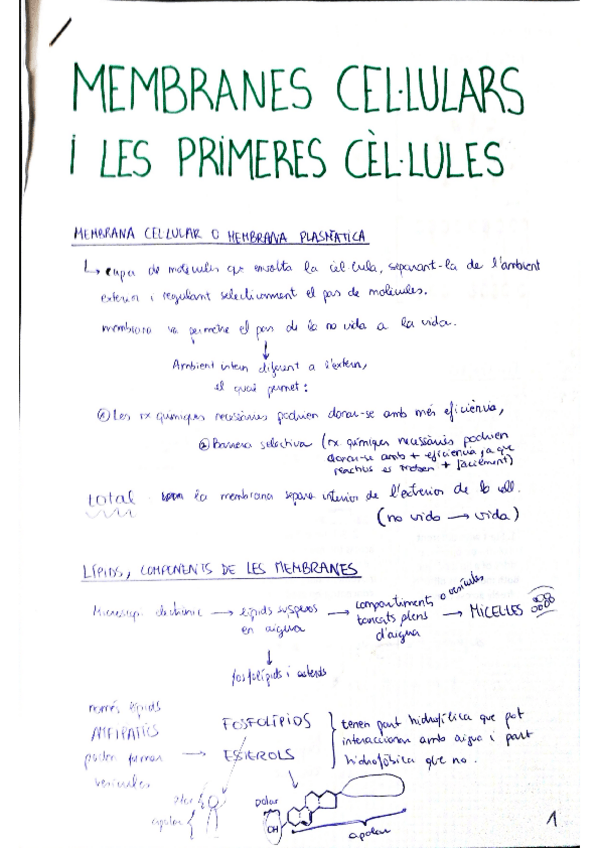 MEMBRANES CEL·LULARS
I LES PRIMERES CÈL·LULES
MEMBRANA CEL·LULAR O MEMBRANA PLASMÀTICA
↳ capa de molècules que envolta la cèl·lula, separant-la de l'ambient
exterior i regulant selectivament el pas de molècules.
membrana va permetre el pas de la no vida a la vida.
Ambient intern diferent a l'extern,
el qual permet:
Les rx químiques necessàries podrien donar-se amb més eficiència,
Barrera selectiva (rx químiques necessàries podrien
donar-se amb + eficiència, ja que
reactius es troben + fàcilment)
total la membrana separa interior de l'exterior de la cèl.
(no vida → vida)
LÍPIDS, COMPONENTS DE LES MEMBRANES
Microscopi electrònic → lípids suspesos → compartiments o vesícules → MICELLES
en aigua
tancats plens
d'aigua
fosfolípids i esterols
només lípids
AMFIPÀTICS
poden formar
vesícules
→
FOSFOLÍPIDS
ESTEROLS
tenen part hidrofílica que pot
interaccionar amb aigua i part
hidrofòbica que no.
polar
apolar
polar
OH
apolar
1